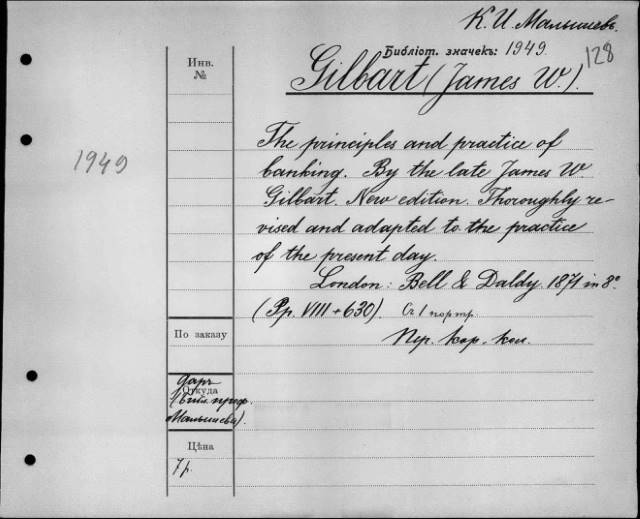 К. И. Малышевъ.
Библіот. значекъ: 1949.
128
Gilbart (James W.).
Инв.
№
1949
The principles and practice of
banking. By the late James W.
Gilbart. New edition. Thoroughly re-
vised and adapted to the practice
of the present day.
London: Bell & Daldy. 1871 in 8°
(Pp. VIII + 630). Съ 1 портр.
Пер. кор. кол.
По заказу
Даръ
Откуда
(библ. проф.
Малышева).
Цѣна
7 р.